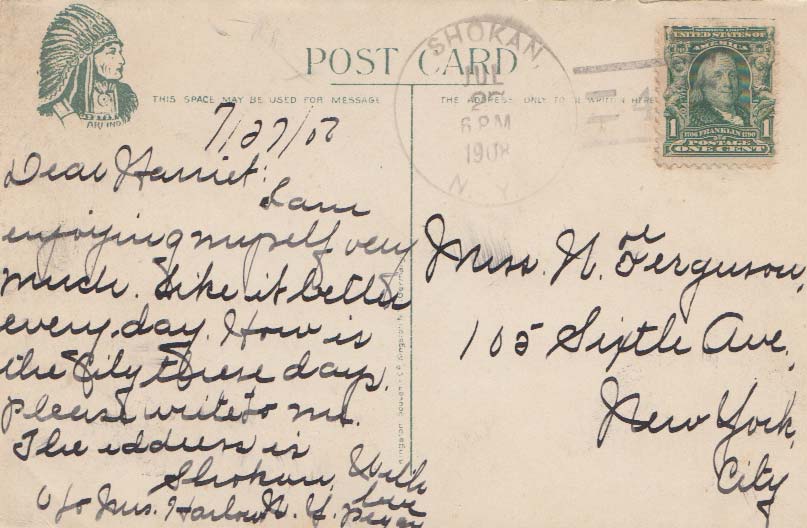 POST CARD
THIS SPACE MAY BE USED FOR MESSAGE
THE ADDRESS ONLY TO BE WRITTEN HERE
SHOKAN,
JUL
27
6 PM
1908
N. Y.
UNITED STATES OF
AMERICA
1 1706 FRANKLIN 1790 1
POSTAGE
ONE CENT
7/27/08
Dear Harriet:
I am
enjoying myself very
much. Like it better
every day. How is
the City these days.
Please write to me.
The address is
Shokan, With
c/o Mrs. N. Y. love
Miss. H. Ferguson,
105 Sixth Ave,
New York,
City